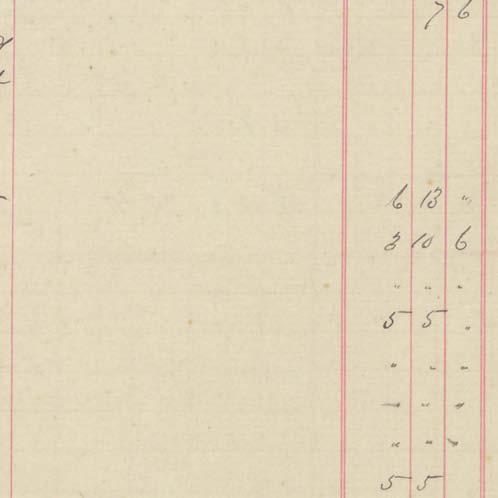 7 6
6 13 "
3 10 6
" " "
5 5 "
" " "
— " "
" " "
5 5